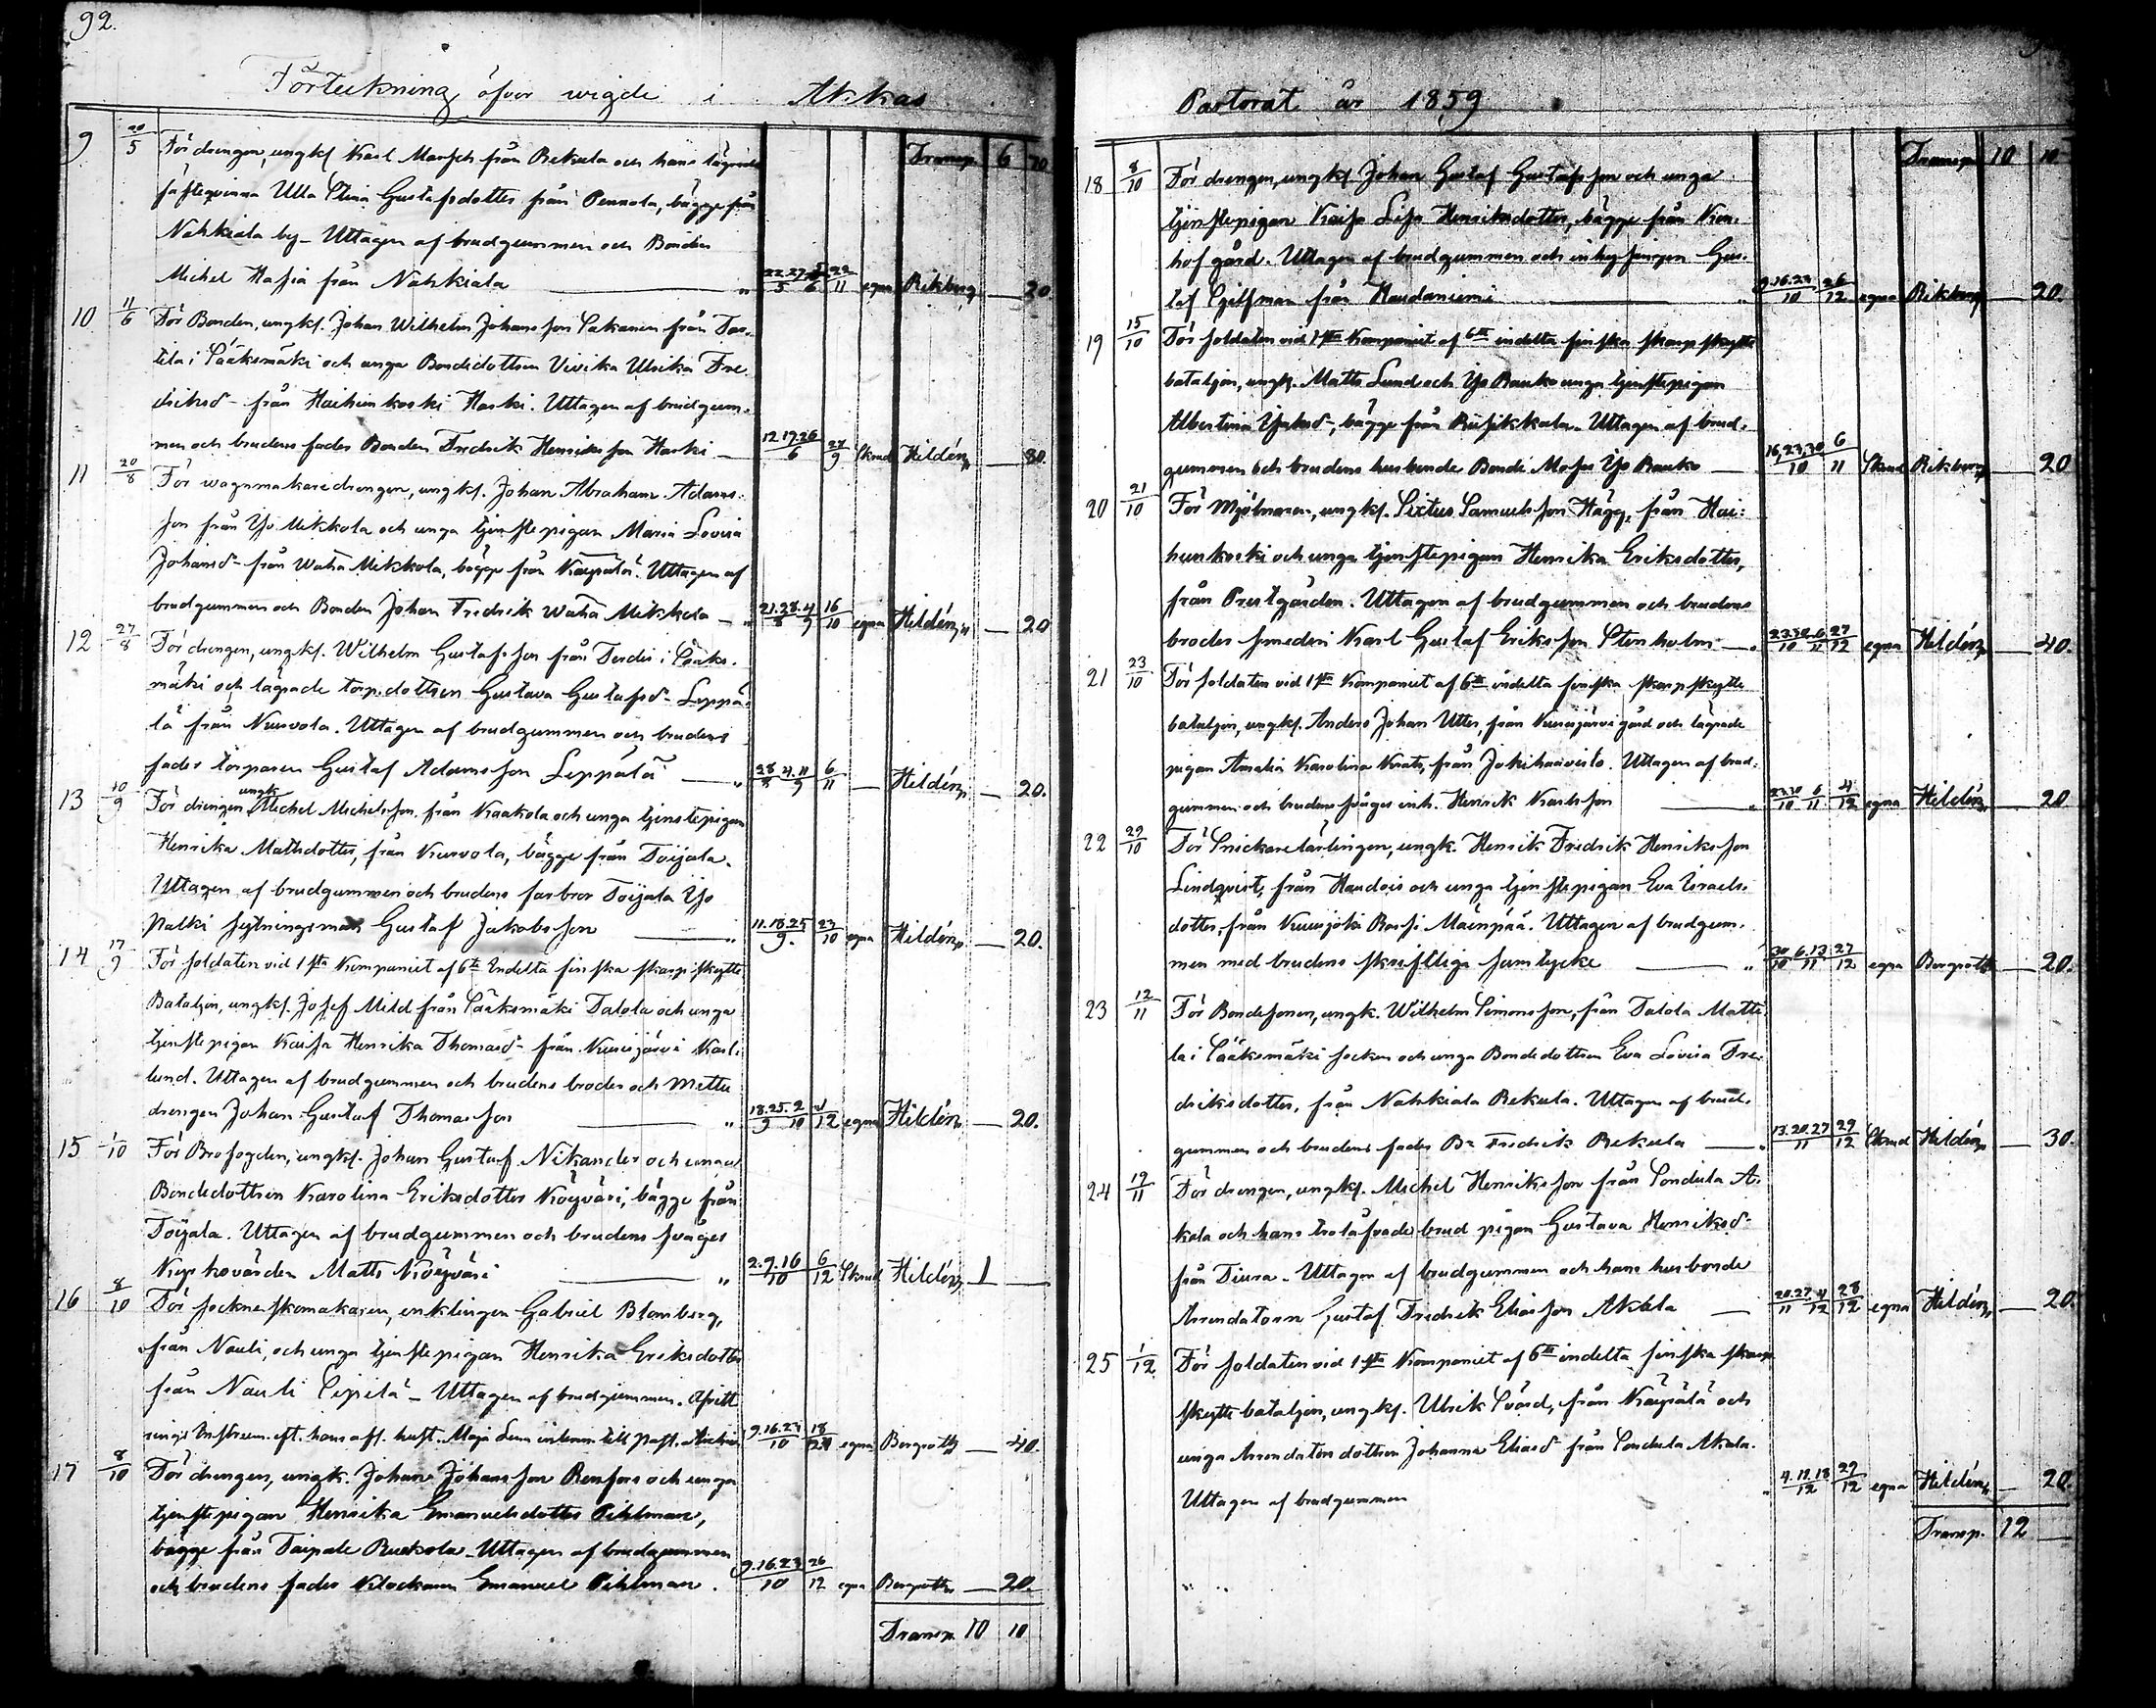 92.
Förteckning öfver wigde i Akkas
Transp. 6 70
9 20/5 För drengen, ungk. Karl Marsch från Rekula och hans lägrade
fästeqvinna Ulla Stina Gustafsdotter från Pennola, bägge från
Nahkiala by - Uttagen af brudgummen och Bonden
Michel Hassia från Nahkiala " 22.27.5/5 6 22/11 egna Rikberg — 20
10 11/6 För Bonden, ungk. Johan Wilhelm Johansson Sakanen från Tar-
tila i Sääksmäki och unga Bondedottren Vivika Ulrika Fre-
driksd- från Haihunkoski Haski. Uttagen af brudgum-
men och brudens fader Bonden Fredrik Henriksson Haski — 12.19.26/6 27/9 Skrud Hildén — 80.
11 20/8 För wagnmakaredrengen, ungk. Johan Abraham Adams-
son från Yso Mikkola och unga tjenstepigan Maria Lovisa
Johansd- från Wähä Mikkola, bägge från Käypälä. Uttagen af
brudgummen och Bonden Johan Fredrik Wähä Mikkola — " 21.28.4/8 9 16/10 egna Hildén — 20
12 27/8 För drengen, ungk. Wilhelm Gustafsson från Terdis i Sääks-
mäki och lägrade torp.dottren Gustava Gustafsd- Leppä-
lä från Kurvola. Uttagen af brudgummen och brudens
fader torparen Gustaf Adamsson Leppälä — " 28.4.11/8 9 6/11 — Hildén — 20.
13 10/9 För drengen ungk Michel Michelsson från Kaakola och unga tjenstepigan
Henrika Mathsdotter, från Kurvola, bägge från Toijala.
Uttagen af brudgummen och brudens farbror Toijala Yso
Nalki sytningsman Gustaf Jakobsson — " 11.18.25/9. 23/10 egna Hildén — 20.
14 17/9 För soldaten vid 1sta Kompaniet af 6te Indelta finska skarpskytte
Bataljon, ungk. Josef Mild från Sääksmäki Talola och unga
tjenstepigan Kaisa Henrika Thomasd- från Kurisjärvi Karl-
lund. Uttagen af brudgummen och brudens broder och Mette
drengen Johan Gustaf Thomasson — " 18.25.2/9 10 4/12 egna Hildén — 20.
15 1/10 För Brofogden, ungk. Johan Gustaf Nikander och unga
Bondedottren Karolina Eriksdotter Köyväri, bägge från
Toijala. Uttagen af brudgummen och brudens svåger
Kyrkovärden Matts Köyväri — " 2.9.16/10 6/12 Skrud Hildén 1 —
16 8/10 För sockneskomakaren, enklingen Gabriel Blomberg,
från Nauli, och unga tjenstepigan Henrika Eriksdotter
från Nauli Sipilä - Uttagen af brudgummen. Afvitt-
rings Instrum. eft. hans afl. hust. Maja Lena inlemn. till past. Archiv. 9.16.23/10 18/12 egna Bergroth — 40.
17 8/10 För drengen, ungk. Johan Johansson Renfors och unga
tjenstepigan Henrika Emanuelsdotter Pihlman,
bägge från Taipale Ruokola. Uttagen af brudgummen
och brudens fader Klockaren Emanuel Pihlman. 9.16.23/10 26/12 egna Bergroth — 20.
Transp. 10 10
Pastorat år 1859
Transp. 10 10
18 8/10 För drengen, ungk. Johan Gustaf Gustafsson och unga
tjenstepigan Kaisa Lisa Henriksdotter, bägge från Kon-
hof gård. Uttagen af brudgummen och inhysingen Gus-
taf Sjilfman från Haudaniemi 9.16.23/10 26/12 egna Rikberg — 20.
19 15/10 För soldaten vid 1sta Kompaniet af 6te indelta finska skarpskytte
bataljon, ungk. Matts Lund och Yso Rauko unga tjenstepigan
Albertina Jakobsd-, bägge från Riisikkala. Uttagen af brud-
gummen och brudens husbonde Bonde Moses Yso Rauko — 16,23,30/10 6/11 Skrud Rikberg — 20
20 21/10 För Mjölnaren, ungk. Sixtus Samuelsson Hägg, från Hai-
hunkoski och unga tjenstepigan Henrika Eriksdotter,
från Prestgården. Uttagen af brudgummen och brudens
broder smeden Karl Gustaf Eriksson Stenholm — 23.30.6/10 11 27/12 egna Hildén — 40.
21 23/10 För soldaten vid 1sta Kompaniet af 6te indelta finska skarpskytte
bataljon, ungk. Anders Johan Utter, från Kurisjärvi gård och lägrade
pigan Amalia Karolina Kvats, från Jokihaavisto. Uttagen af brud-
gummen och brudens svåger inh. Henrik Karlsson " 23.30 6/10 11 4/12 egna Hildén — 20
22 29/10 För Snickarelärlingen, ungk. Henrik Fredrik Henriksson
Lindqvist, från Haudois och unga tjenstepigan Eva Israels-
dotter, från Kurisjoki Rossi Mäenpää. Uttagen af brudgum-
men med brudens skriftliga samtycke — " 30 6.13/10 11 27/12 egna Bergroth — 20.
23 12/11 För Bondesonen, ungk. Wilhelm Simonsson, från Talola Matti-
la i Sääksmäki socken och unga Bondedottren Eva Lovisa Fre-
driksdotter, från Nahkiala Rekula. Uttagen af brud-
gummen och brudens fader Bn Fredrik Rekula — " 13.20.27/11 29/12 Skrud Hildén — 30.
24 19/11 För drengen, ungk. Michel Henriksson från Sondula A-
kola och hans trolåfvade brud pigan Gustava Henriksd-
från Tiura. Uttagen af brudgummen och hans husbonde
Arrendatorn Gustaf Fredrik Eliasson Akola — 20.27 4/11 12 28/12 egna Hildén — 20.
25 1/12 För soldaten vid 1sta Kompaniet af 6te indelta finska skarp-
skytte bataljon, ungk. Ulrik Svärd, från Käypälä och
unga Arrendatorsdottren Johanna Eliasd- från Sondula Akola.
Uttagen af brudgummen " 4.11.18/12 29/12 egna Hildén — 20.
Transp. 12 —